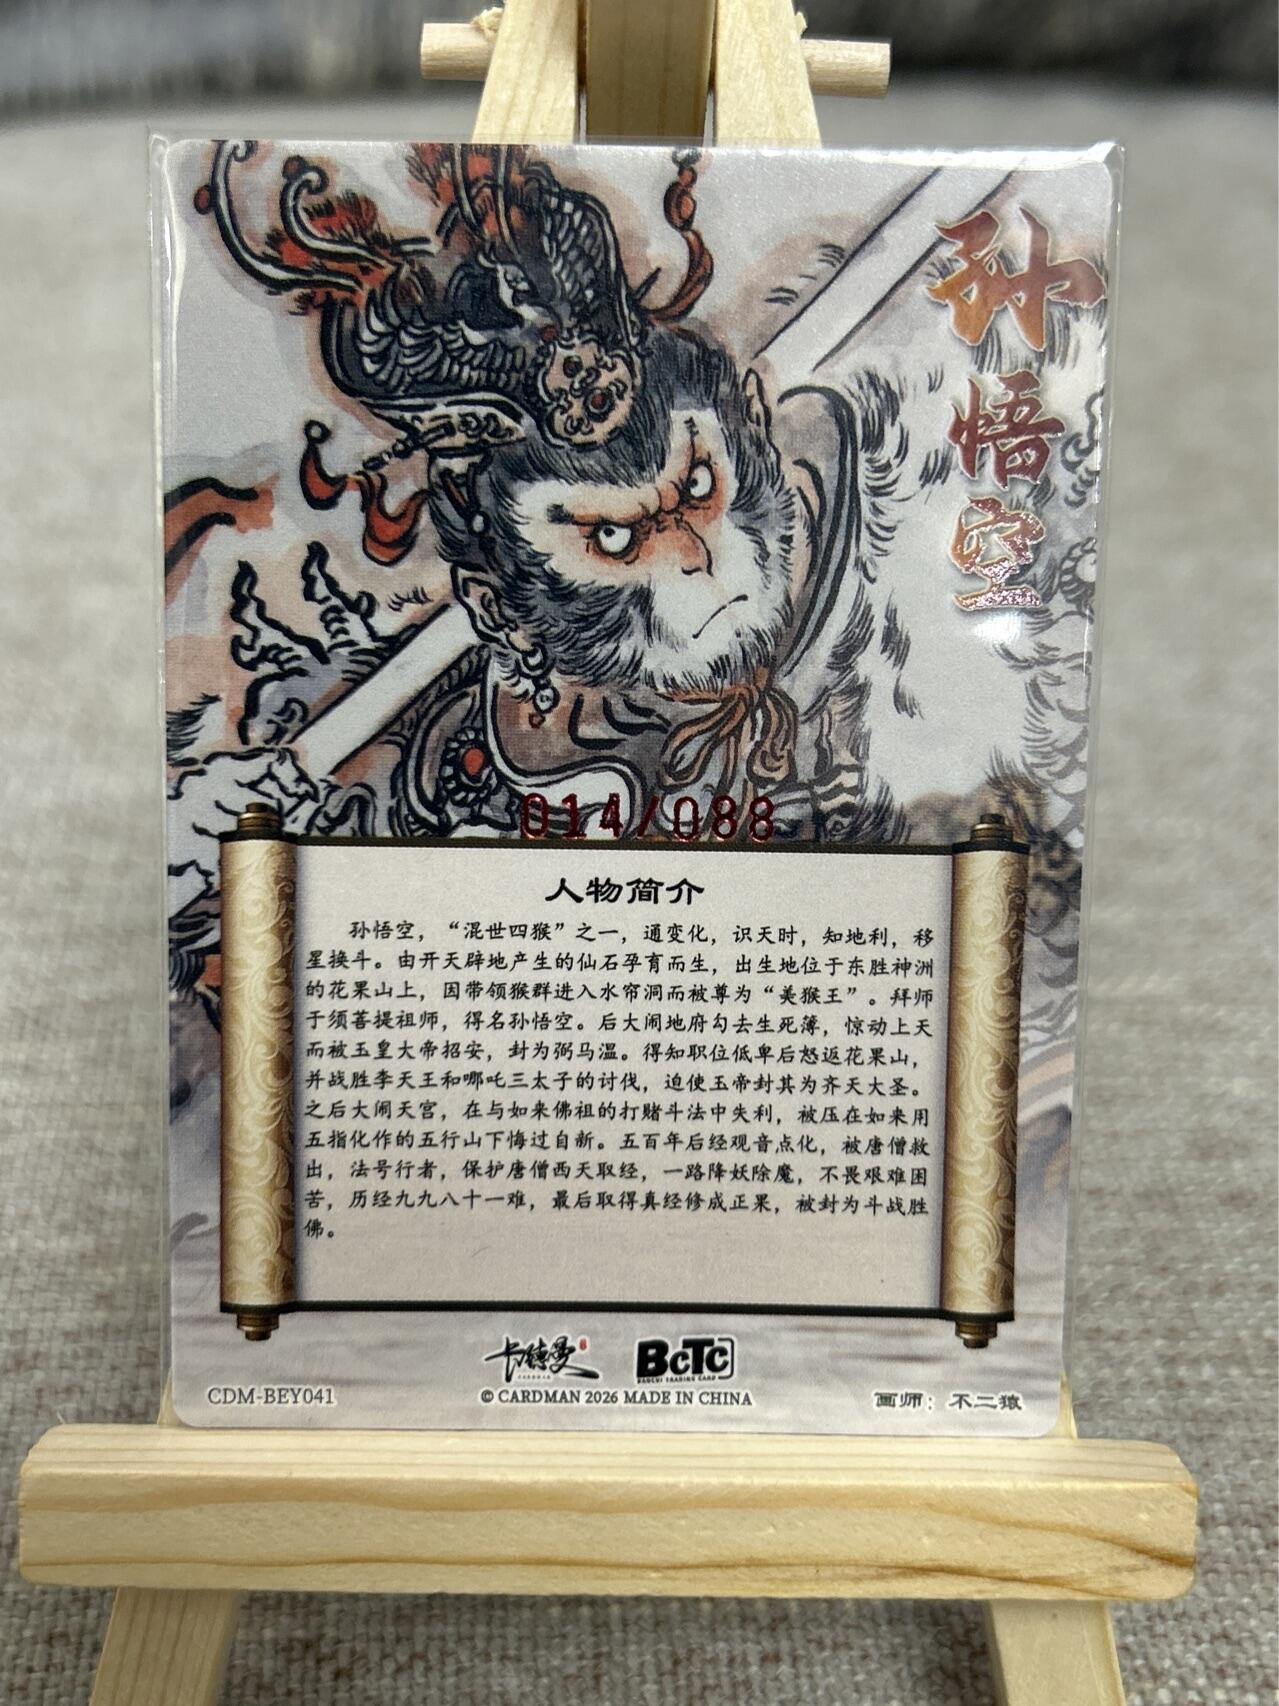 孙悟空
014/088
人物简介
孙悟空，“混世四猴”之一，通变化，识天时，知地利，移
星换斗。由开天辟地产生的仙石孕育而生，出生地位于东胜神洲
的花果山上，因带领猴群进入水帘洞而被尊为“美猴王”。拜师
于须菩提祖师，得名孙悟空。后大闹地府勾去生死簿，惊动上天
而被玉皇大帝招安，封为弼马温。得知职位低卑后怒返花果山，
并战胜李天王和哪吒三太子的讨伐，迫使玉帝封其为齐天大圣。
之后大闹天宫，在与如来佛祖的打赌斗法中失利，被压在如来用
五指化作的五行山下悔过自新。五百年后经观音点化，被唐僧救
出，法号行者，保护唐僧西天取经，一路降妖除魔，不畏艰难困
苦，历经九九八十一难，最后取得真经修成正果，被封为斗战胜
佛。
卡德曼
CARDMAN
BCTC
BAOCUI TRADING CARD
CDM-BEY041
© CARDMAN 2026 MADE IN CHINA
画师：不二猿